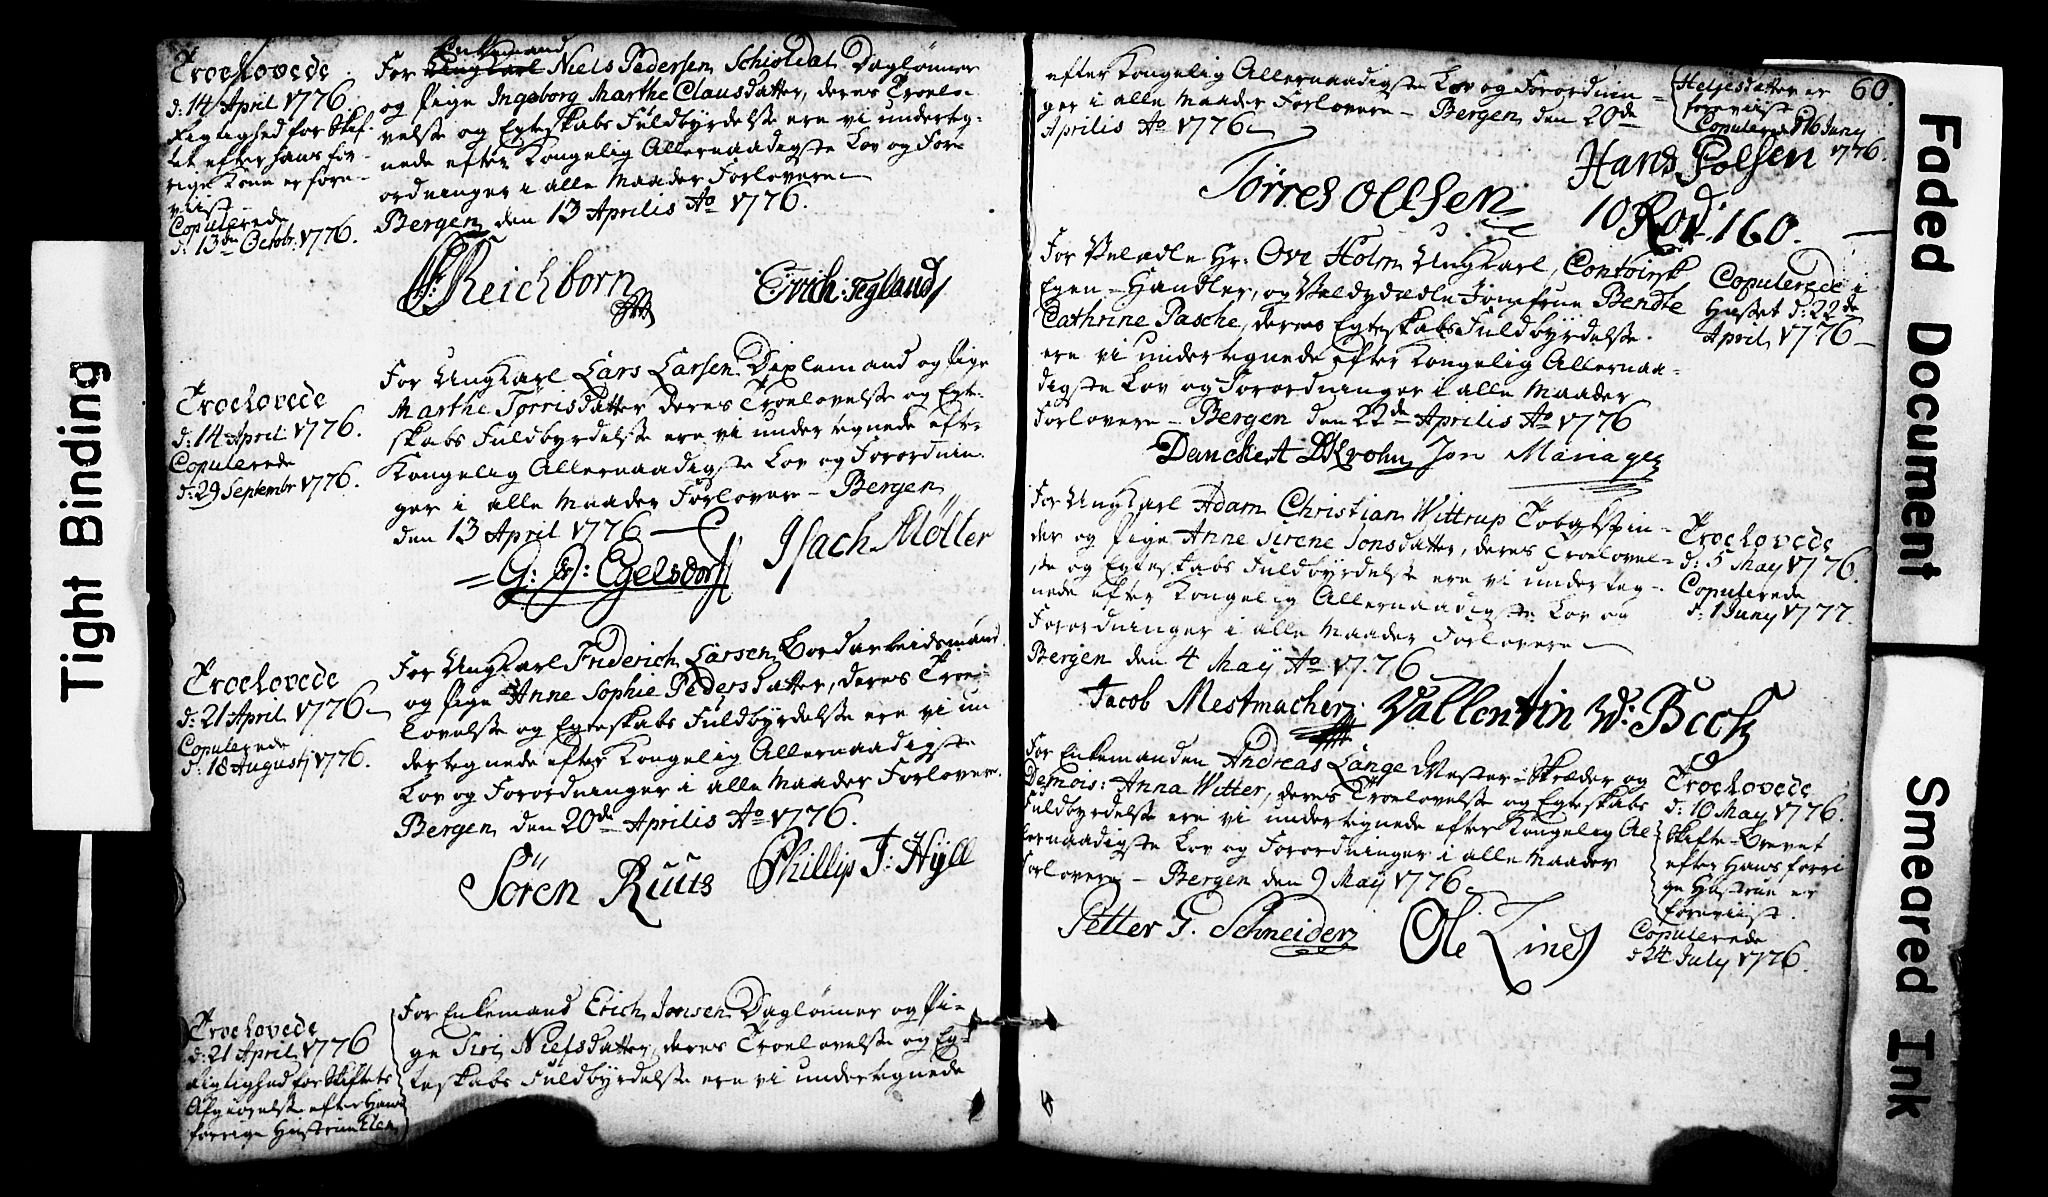 Tight Binding
Troelovede
d: 14 April 1776.
Rigtighed for Skif-
tet efter hans for-
rige Kone er fore-
viist
Copulerede
d: 13de Octobr: 1776.
Enkemand
For UngKarl Niels Pedersen Schioldal Daglønner
og Pige Ingeborg Marthe Clausdatter, deres Troelo-
velse og Egteskabs Fuldbyrdelse ere vi underteg-
nede efter Kongelig Allernaadigste Lov og For-
ordninger i alle Maader Forlovere
Bergen den 13 Aprilis Ao 1776.
Reichborn Erich: Tegland
Troelovede
d: 14 April 1776.
Copulerede
d: 29 Septembr 1776.
For UngKarl Lars Larsen Diplemand og Pige
Marthe Tørrisdatter deres Troelovelse og Egte-
skabs Fuldbyrdelse ere vi undertegnede efter
Kongelig Allernaadigste Lov og Forordnin-
ger i alle Maader Forlovere - Bergen
den 13 April 1776
G: Egelsdorff Isach Møller
Troelovede
d: 21 April 1776
Copulerede
d: 18 Augustj 1776.
For UngKarl Friderich Larsen Bordarbeidsmand
og Pige Anne Sophie Pedersdatter, deres Troe-
lovelse og Egteskabs Fuldbyrdelse ere vi un
dertegnede efter Kongelig Allernaadigste
Lov og Forordninger i alle Maader Forlovere.
Bergen den 20de Aprilis Ao 1776.
Sören Ruus Phillip J: Hÿll
Troelovede
d: 21 April 1776
Rigtighed for Skiftets
Afgiørelse efter Hans
forrige Hustrue
For Enkemand Erich Jonsen Daglønner og Pi-
ge Siri Nielsdatter, deres Troelovelse og Eg-
teskabs Fuldbyrdelse ere vi undertegnede
60.
efter Kongelig Allernaadigste Lov og Forordnin-
ger i alle Maader Forlovere - Bergen den 20de
Aprilis Ao 1776
Heljesdatter er
foreviist
Copulerede d 16 Juny
1776.
Tørres Ollsen Hans Polsen
10 Rod: 160.
For Velædle Hr: Ove Holm UngKarl, Contoirsk
Egen-Handler, og Veldydædle Jomfrue Bendte
Cathrine Pasche, deres Egteskabs Fuldbyrdelse.
ere vi undertegnede efter Kongelig Allernaa-
digste Lov og Forordninger i alle Maader
Forlovere - Bergen den 22de Aprilis Ao 1776
Copulerede i
Huset d: 22de
April 1776
Danckert DKrohn Jon Mariager
For UngKarl Adam Christian Wittrup Tobakspin-
der og Pige Anne Sirene Jonsdatter, deres Troelovel-
se og Egteskabs Fuldbyrdelse ere vi underteg-
nede efter Kongelig Allernaadigste Lov og
Forordninger i alle Maader Forlovere
Bergen den 4 Maÿ Ao 1776
Troelovede
d: 5 May 1776.
Copulerede
d: 1 Juny 1777.
Jacob Mestmacher Vallentin W: Beck
For Enkemanden Andreas Lange Mester-Skræder og
Demois: Anna Witter, deres Troelovelse og Egteskabs
Fuldbyrdelse ere vi undertegnede efter Kongelig Al
lernaadigste Lov og Forordninger i alle Maader
Forlovere - Bergen den 9 May 1776
Troelovede
d: 10 May 1776.
Skifte-Brevet
efter Hans forri
ge Hustrue er
foreviist.
Copulerede
d 24 July 1776.
Petter G. Schneider Ole Zinet
Faded Document
Smeared Ink